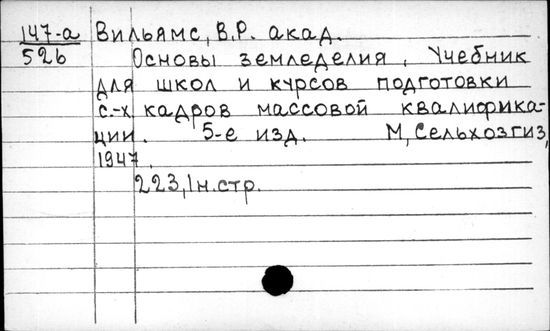 147-а Вильямс, В.Р. акад.
526 Основы земледелия, Учебник
для школ и курсов подготовки
с.-х. кадров массовой квалифика-
ции. 5-е изд. М, Сельхозгиз,
1947.
223, 1 н. стр.